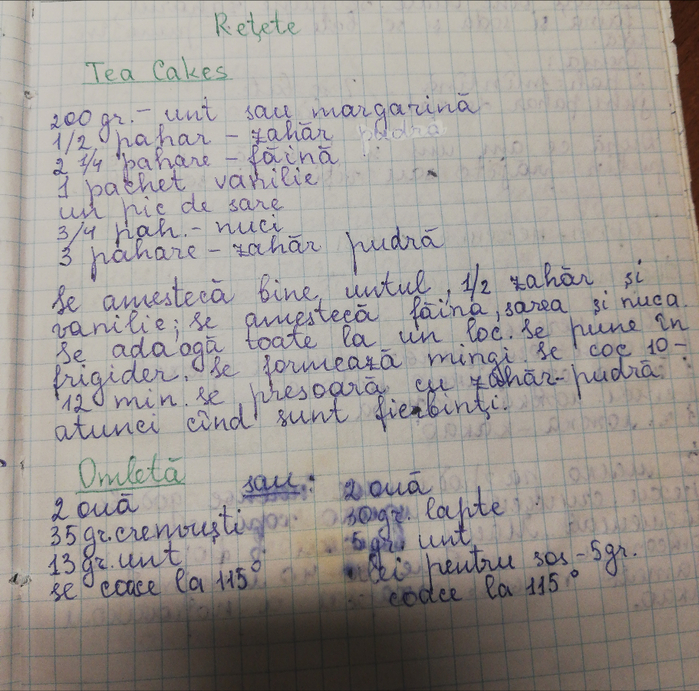 Rețete
Tea Cakes
200 gr. - unt sau margarină
1/2 pahar - zahăr pudră
2 1/4 pahare - făină
1 pachet vanilie
un pic de sare
3/4 pah. - nuci
3 pahare - zahăr pudră
Se amestecă bine untul, 1/2 zahăr și
vanilie; se amestecă făina, sarea și nuca.
Se adaogă toate la un loc. Se pune în
frigider. Se formează mingi se coc 10-
12 min. se presoară cu zahăr-pudră
atunci cînd sunt fierbinți.
Omletă
2 ouă
35 gr.
13 gr. unt
se coace la 115°
sau:
2 ouă
gr. lapte
5 gr. unt
pentru sos - 5 gr.
coace la 115°